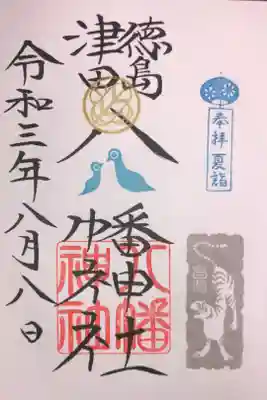 奉拝 夏詣
徳島
津田八幡神社
八幡
神社
令和三年八月八日